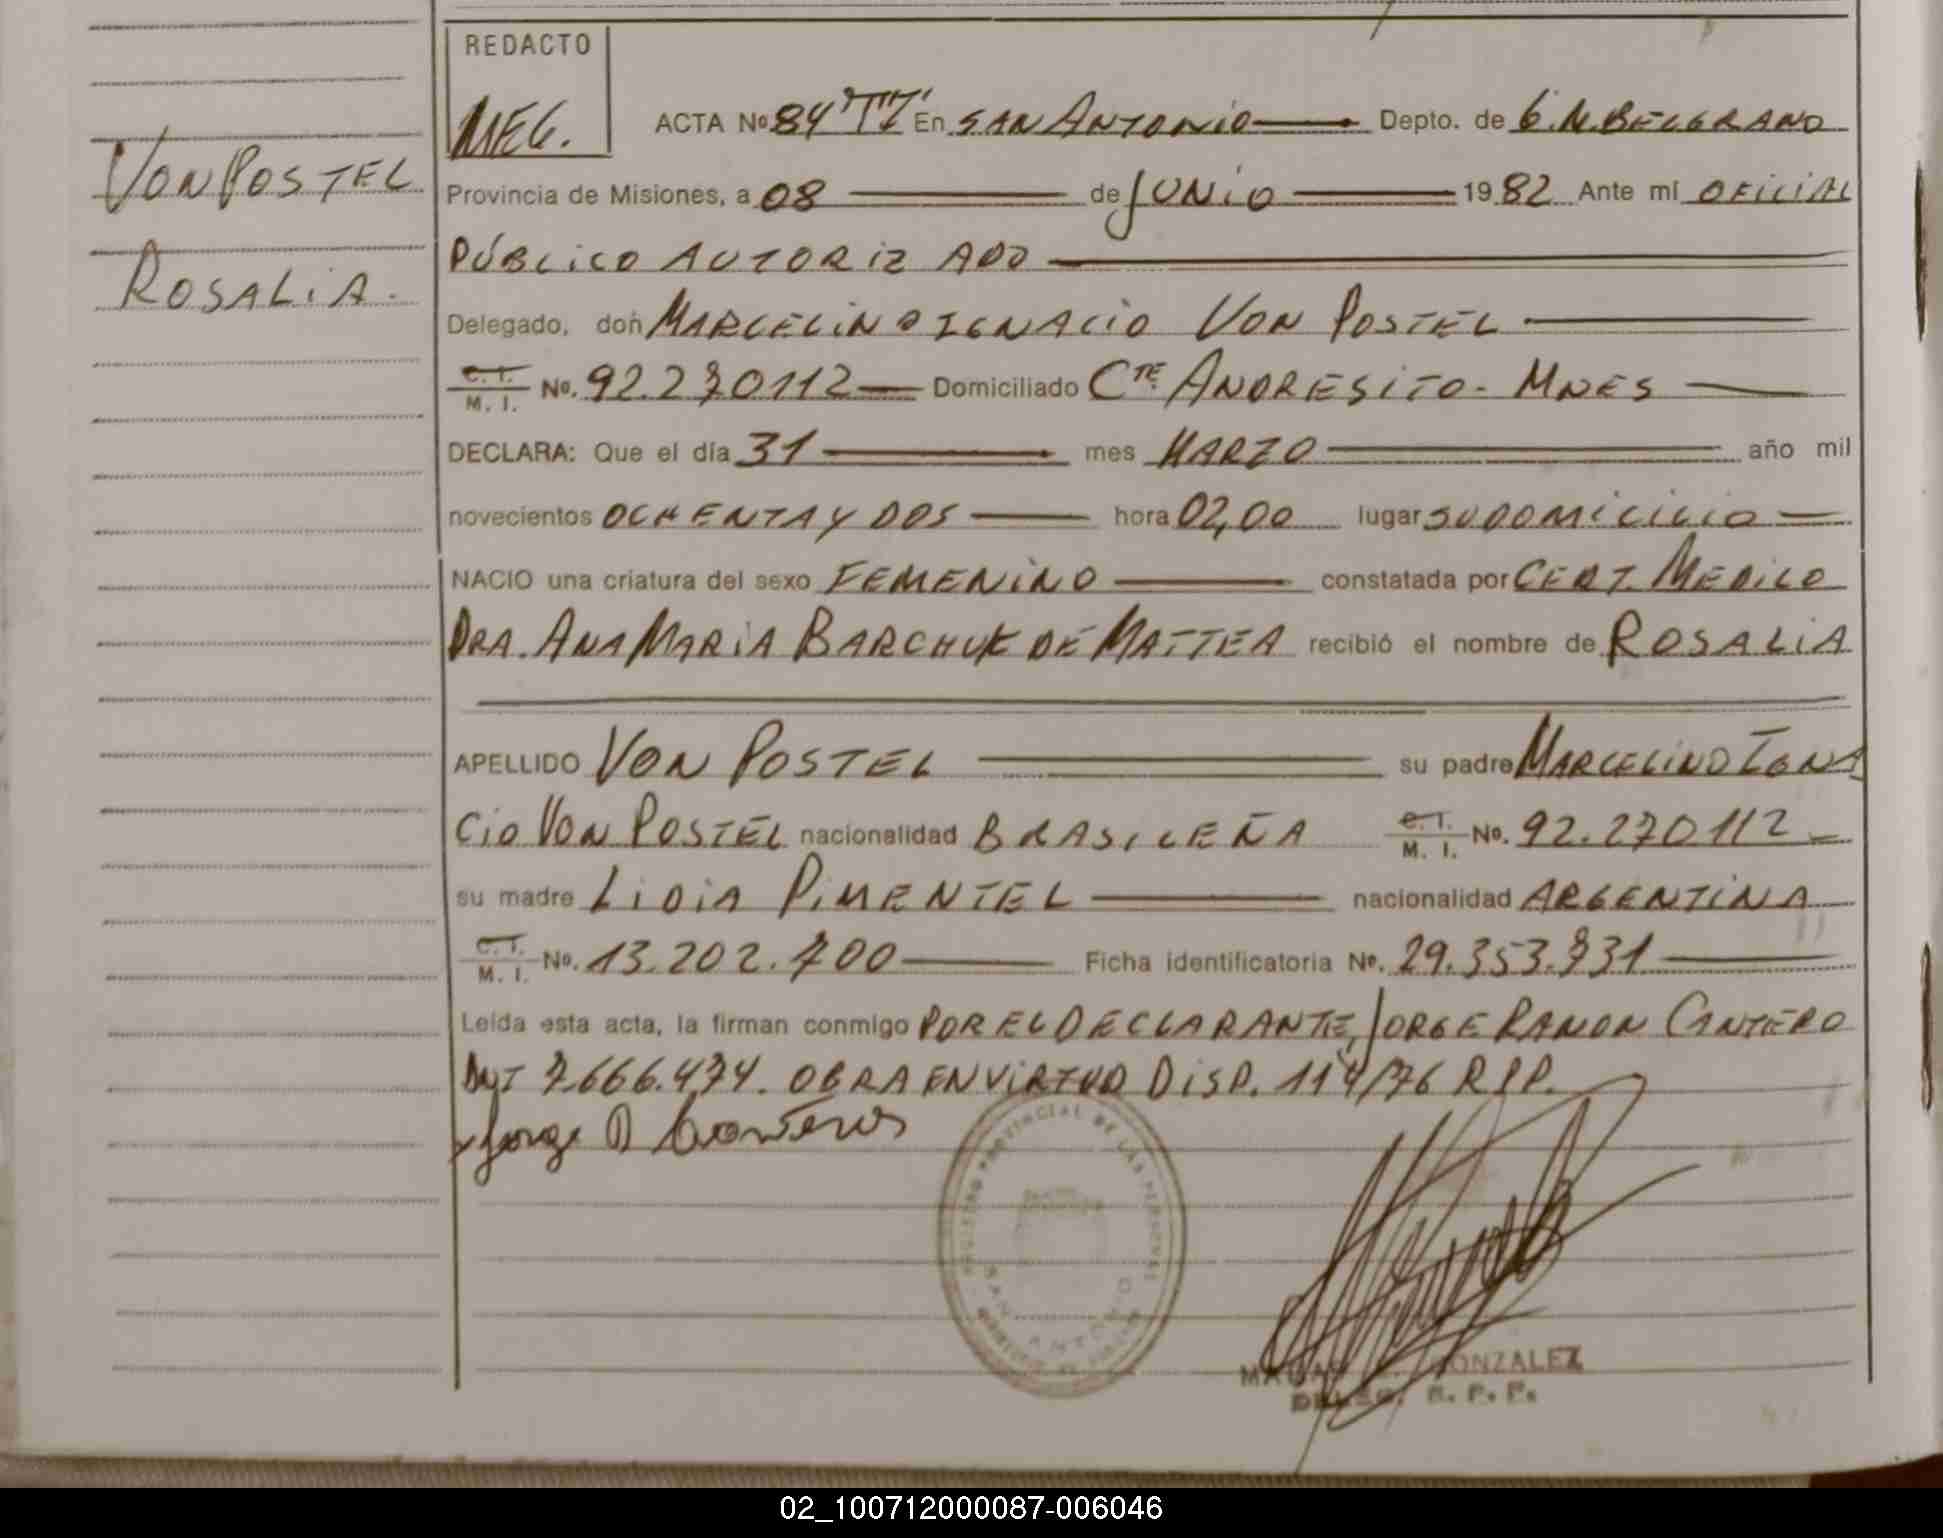 REDACTO
MEG.
ACTA Nº 84 "TI" En SAN ANTONIO Depto. de G.M.BELGRANO
VON POSTEL
Provincia de Misiones, a 08 de JUNIO 1982 Ante mí OFICIAL
PÚBLICO AUTORIZADO
ROSALIA.
Delegado, don MARCELINO IGNACIO VON POSTEL
C. I. M. I. Nº. 92.270112 Domiciliado CTE ANDRESITO - MNES
DECLARA: Que el día 31 mes MARZO año mil
novecientos OCHENTA Y DOS hora 02,00 lugar SU DOMICILIO
NACIO una criatura del sexo FEMENINO constatada por CERT. MEDICO
DRA. ANA MARIA BARCHUK DE MATTEA recibió el nombre de ROSALIA
APELLIDO VON POSTEL su padre MARCELINO IGNA
CIO VON POSTEL nacionalidad BRASILEÑA C. I. M. I. Nº. 92.270112
su madre LIDIA PIMENTEL nacionalidad ARGENTINA
C. I. M. I. Nº. 13.202.700 Ficha identificatoria Nº. 29.353.731
Leída esta acta, la firman conmigo POR EL DECLARANTE, JORGE RAMON CANTERO
DNI 7.666.474. OBRA EN VIRTUD DISP. 114/76 RPP.
Jorge R Canteros
REGISTRO PROVINCIAL DE LAS PERSONAS
SAN ANTONIO
GONZALEZ
DELEG. R. P. P.
02_100712000087-006046